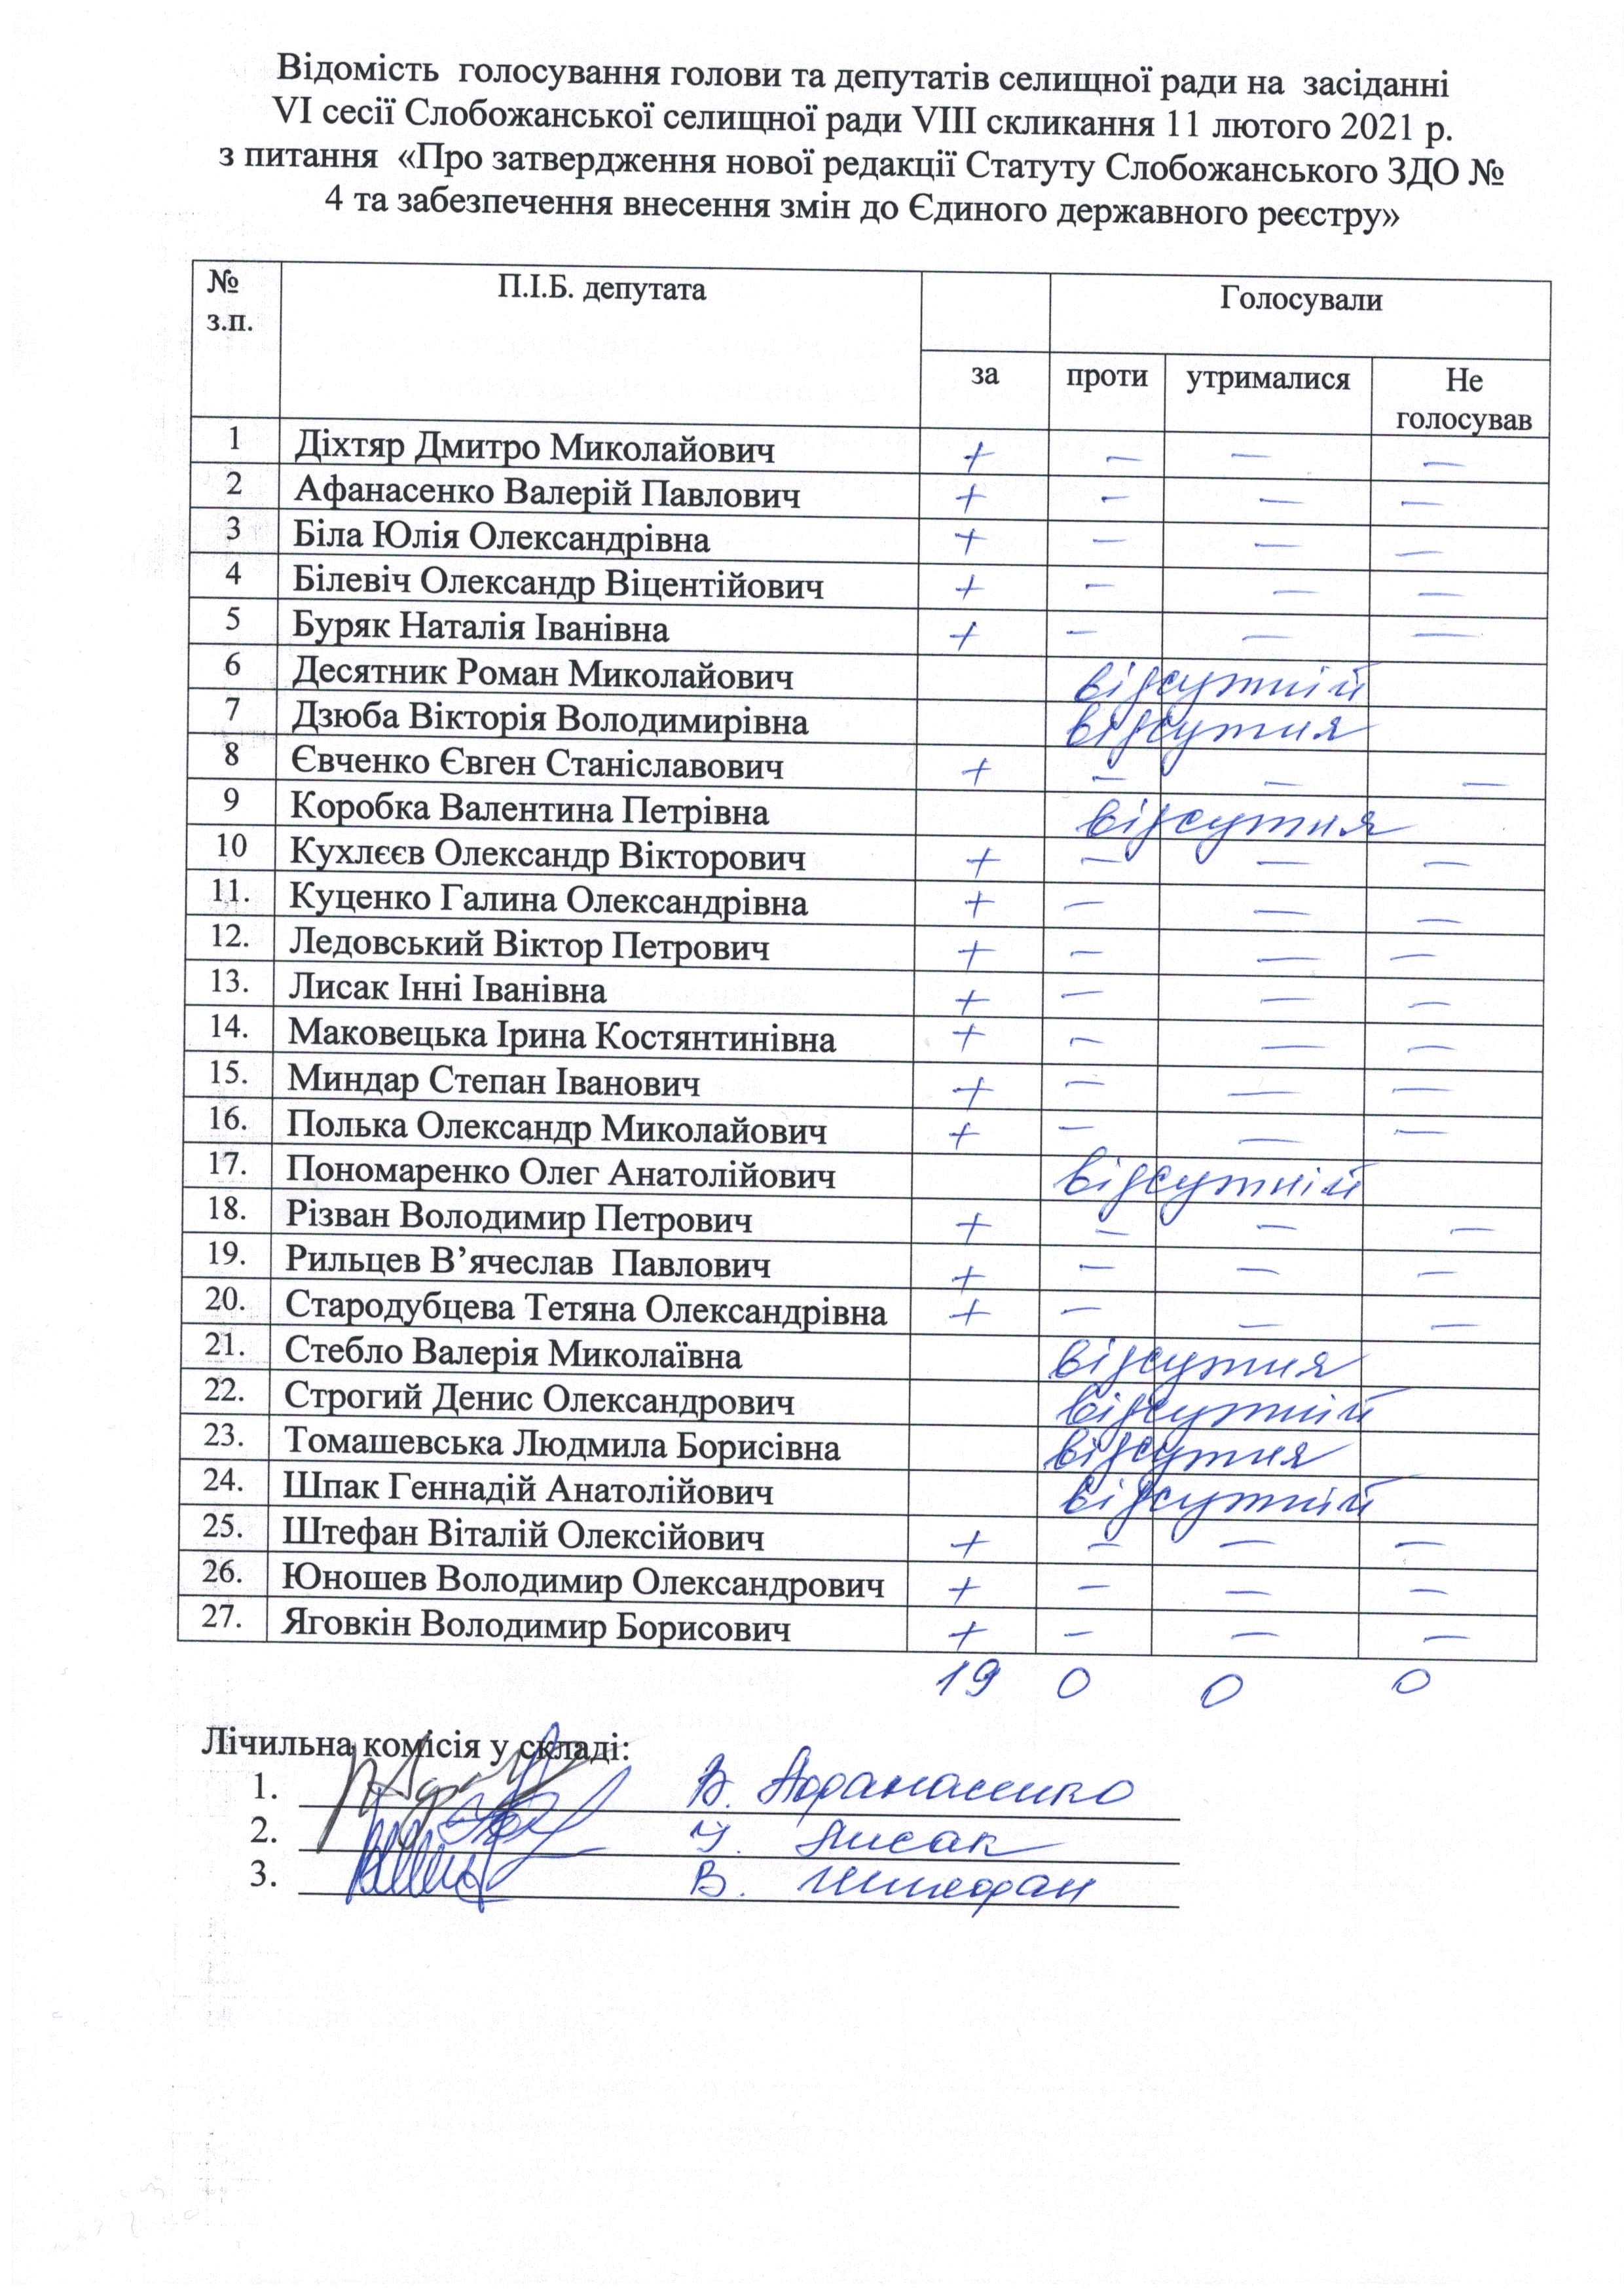 Відомість голосування голови та депутатів селищної ради на засіданні
VI сесії Слобожанської селищної ради VIII скликання 11 лютого 2021 р.
з питання «Про затвердження нової редакції Статуту Слобожанського ЗДО №
4 та забезпечення внесення змін до Єдиного державного реєстру»
№ з.п. П.І.Б. депутата Голосували
за проти утрималися Не голосував
1 Діхтяр Дмитро Миколайович + – – –
2 Афанасенко Валерій Павлович + – – –
3 Біла Юлія Олександрівна + – – –
4 Білевіч Олександр Віцентійович + – – –
5 Буряк Наталія Іванівна + – – –
6 Десятник Роман Миколайович відсутній
7 Дзюба Вікторія Володимирівна відсутня
8 Євченко Євген Станіславович + – – –
9 Коробка Валентина Петрівна відсутня
10 Кухлєєв Олександр Вікторович + – – –
11. Куценко Галина Олександрівна + – – –
12. Ледовський Віктор Петрович + – – –
13. Лисак Інні Іванівна + – – –
14. Маковецька Ірина Костянтинівна + – – –
15. Миндар Степан Іванович + – – –
16. Полька Олександр Миколайович + – – –
17. Пономаренко Олег Анатолійович відсутній
18. Різван Володимир Петрович + – – –
19. Рильцев В’ячеслав Павлович + – – –
20. Стародубцева Тетяна Олександрівна + – – –
21. Стебло Валерія Миколаївна відсутня
22. Строгий Денис Олександрович відсутній
23. Томашевська Людмила Борисівна відсутня
24. Шпак Геннадій Анатолійович відсутній
25. Штефан Віталій Олексійович + – – –
26. Юношев Володимир Олександрович + – – –
27. Яговкін Володимир Борисович + – – –
19 0 0 0
Лічильна комісія у складі:
1. В. Афанасенко
2. І. Лисак
3. В. Штефан